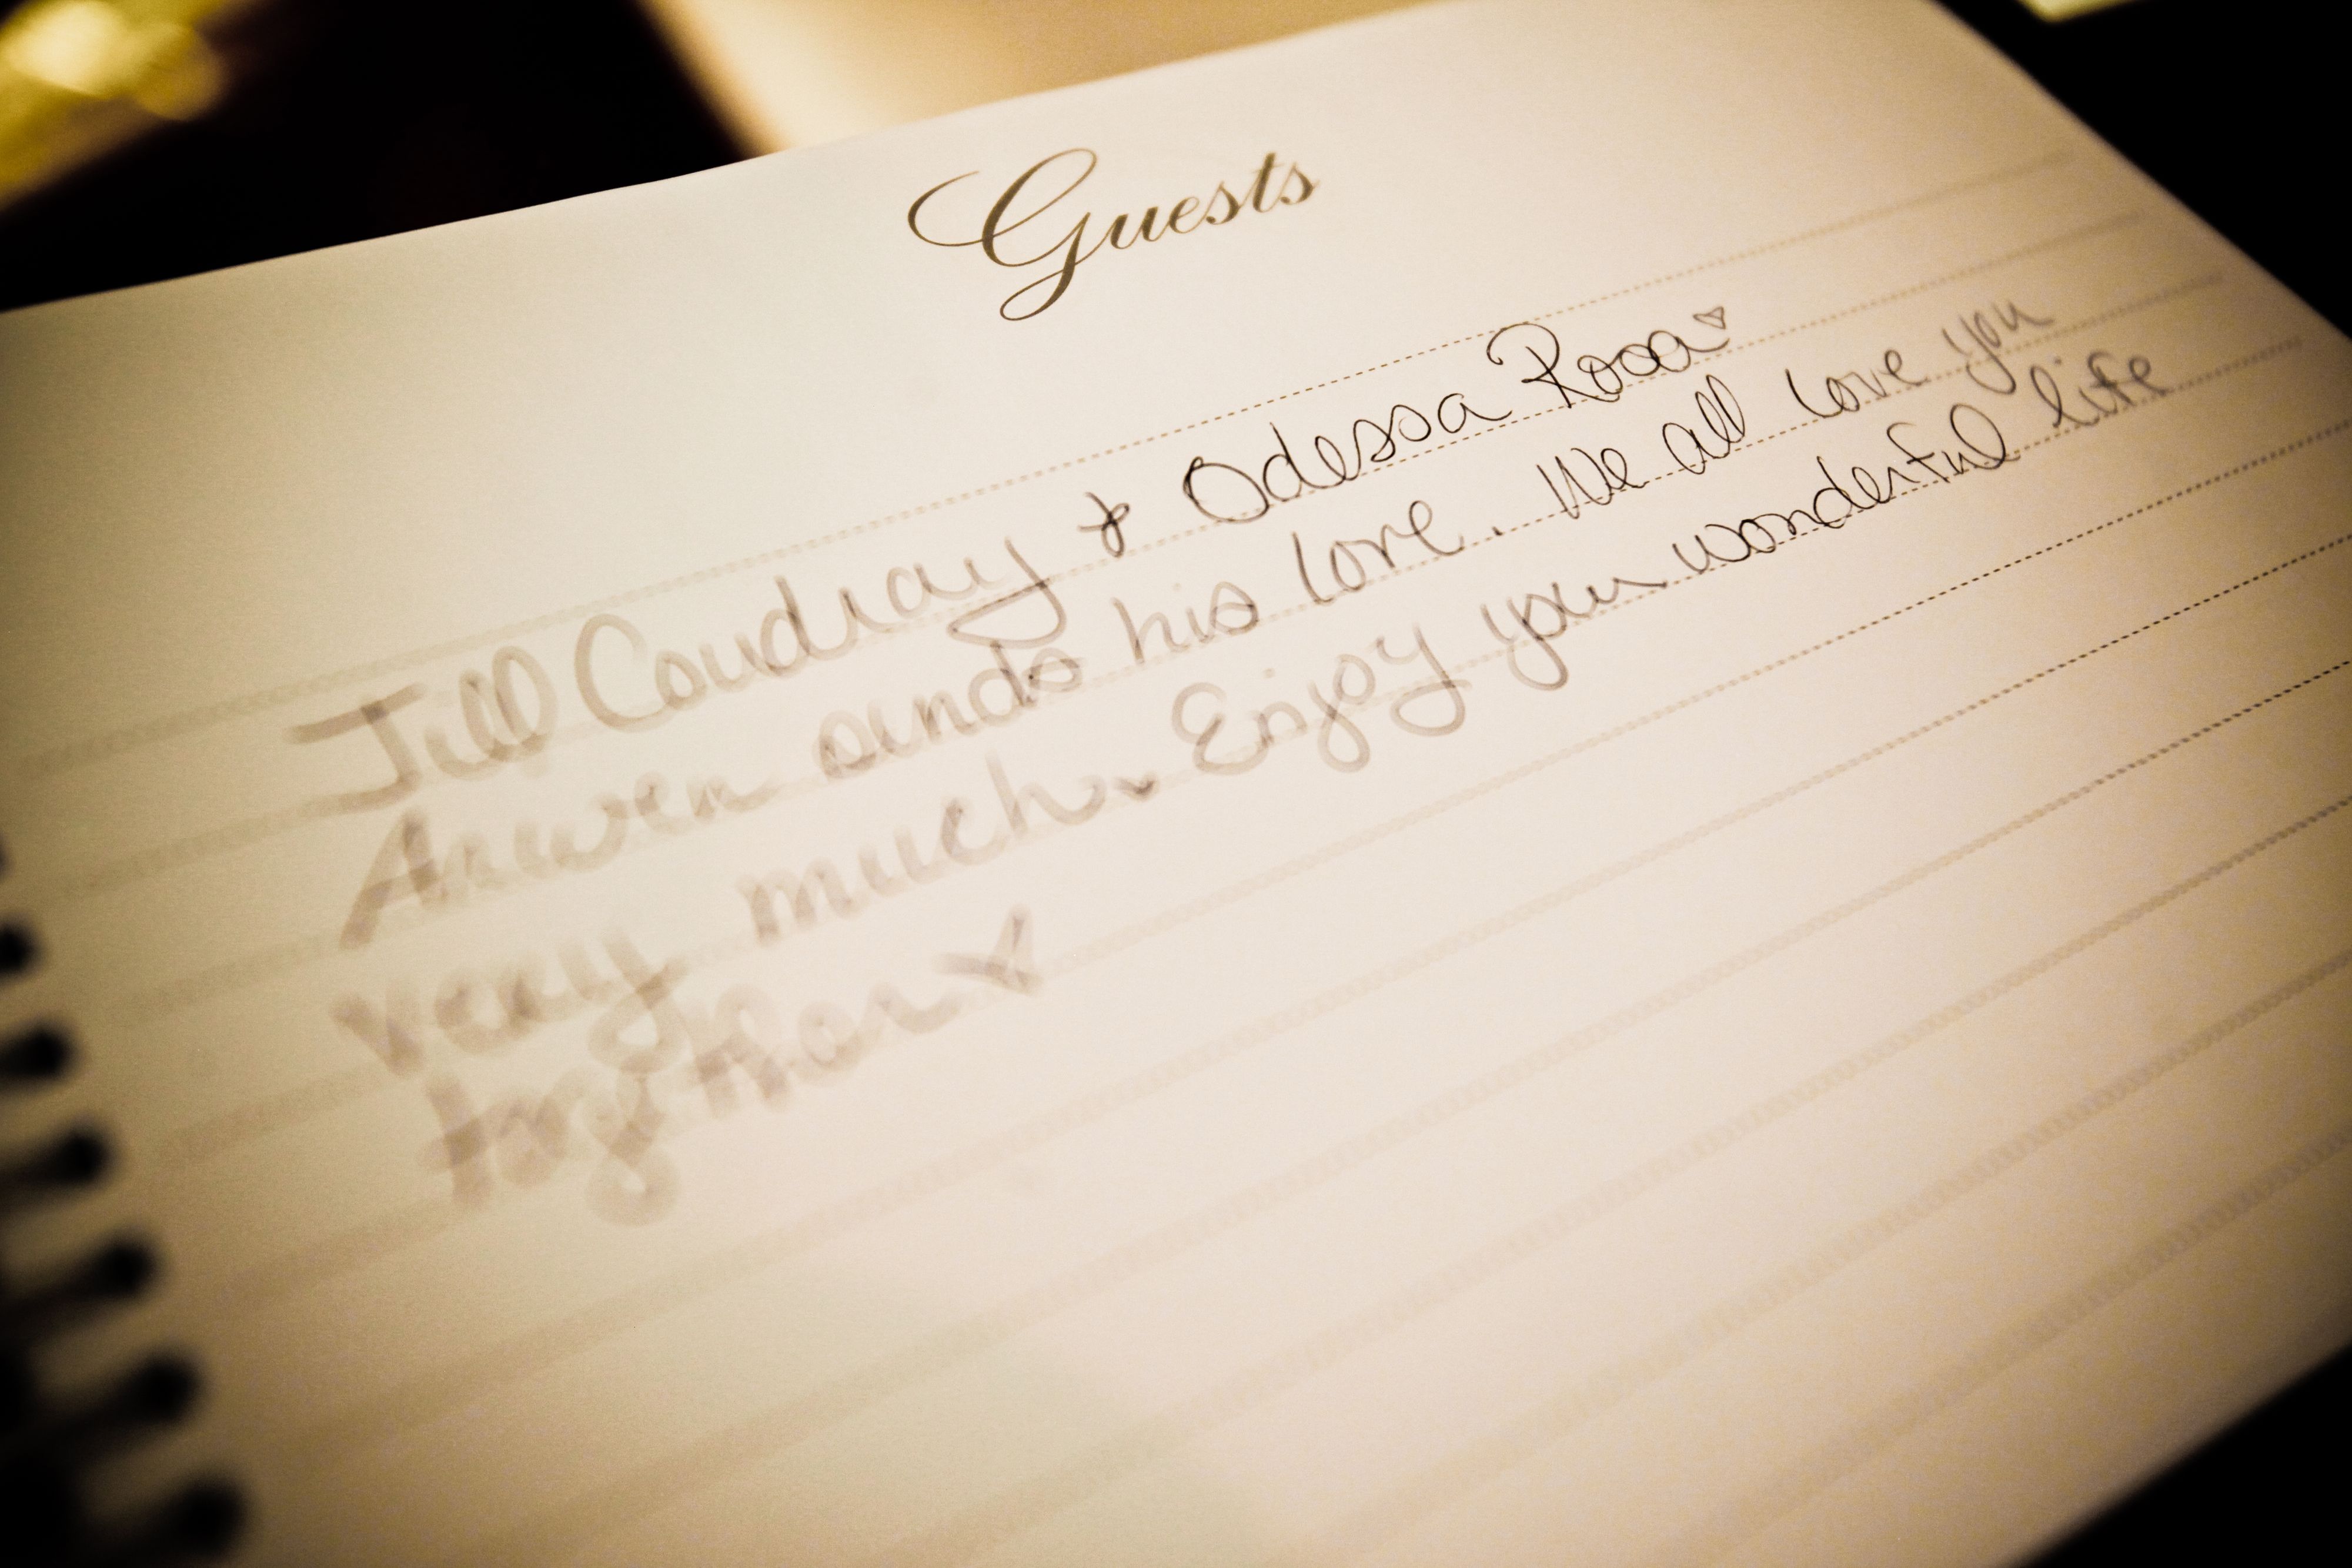 Guests
Jill Coudray & Odessa Rosa
Arwen sends his love. We all love you
very much. Enjoy your wonderful life